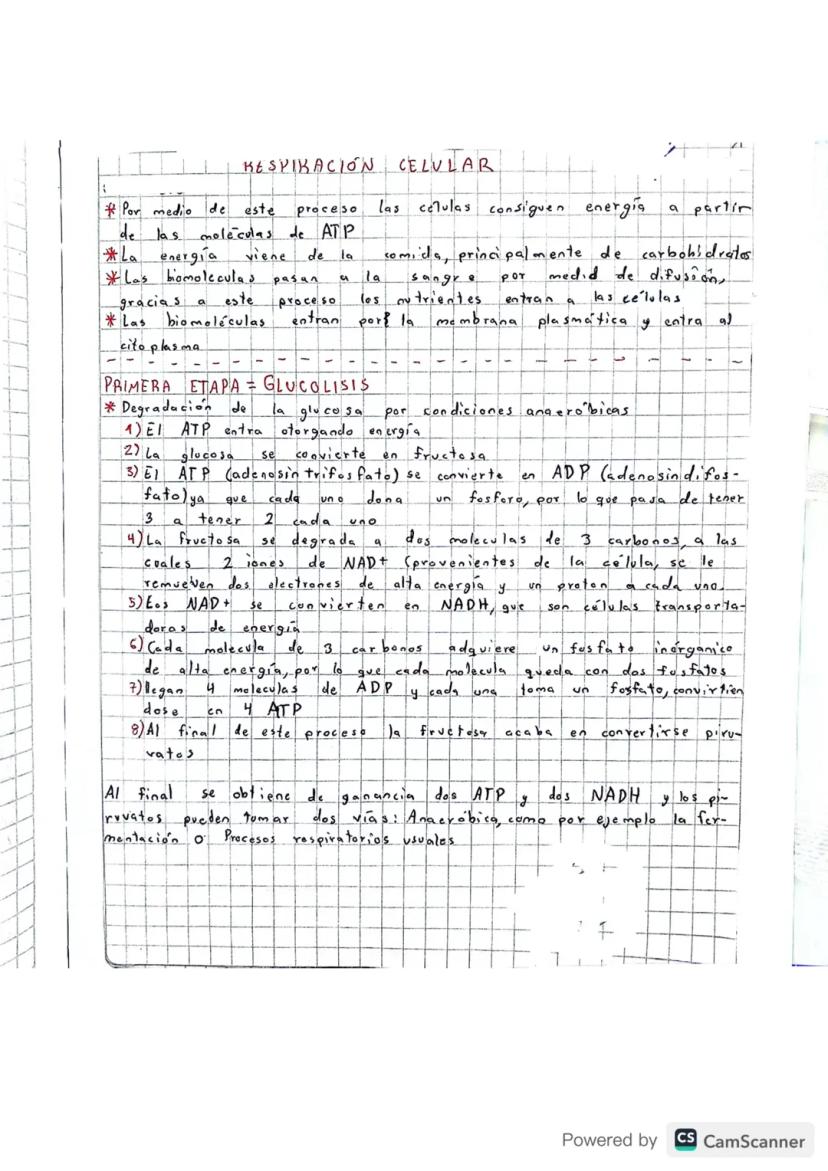 RESPIRACIÓN CELULAR
* Por medio de este proceso las células consiguen energía a partir
de las moléculas de ATP
* La energía viene de la comida, principalmente de carbohidratos
* Las biomoleculas pasan a la sangre por medid de difusión,
gracias a este proceso los nutrientes entran a las células
* Las biomoléculas entran por la membrana plasmática y entra al
citoplasma
PRIMERA ETAPA = GLUCOLISIS
* Degradación de la glucosa por condiciones anaeróbicas
1) El ATP entra otorgando energía
2) La glucosa se convierte en fructosa
3) El ATP (adenosin trifosfato) se convierte en ADP (adenosin difos-
fato) ya que cada uno dona un fosforo, por lo que pasa de tener
3 a tener 2 cada uno
4) La fructosa se degrada a dos moleculas de 3 carbonos, a las
cuales 2 iones de NAD+ (provenientes de la célula, se le
remueven dos electrones de alta energía y un proton a cada uno.
5) Eos NAD+ se convierten en NADH, que son células transporta-
doras de energía
6) Cada molecula de 3 carbonos adquiere un fosfato inórganico
de alta energía, por lo que cada molecula queda con dos fosfatos
7) llegan 4 moleculas de ADP y cada una toma un fosfato, convirtien
dose en 4 ATP
8) Al final de este proceso la fructosa acaba en convertirse piru-
vatos
Al final se obtiene de ganancia dos ATP y dos NADH y los pi-
ruvatos pueden tomar dos vías: Anaeróbica, como por ejemplo la fer-
mentación o Procesos respiratorios usuales
Powered by CS CamScanner